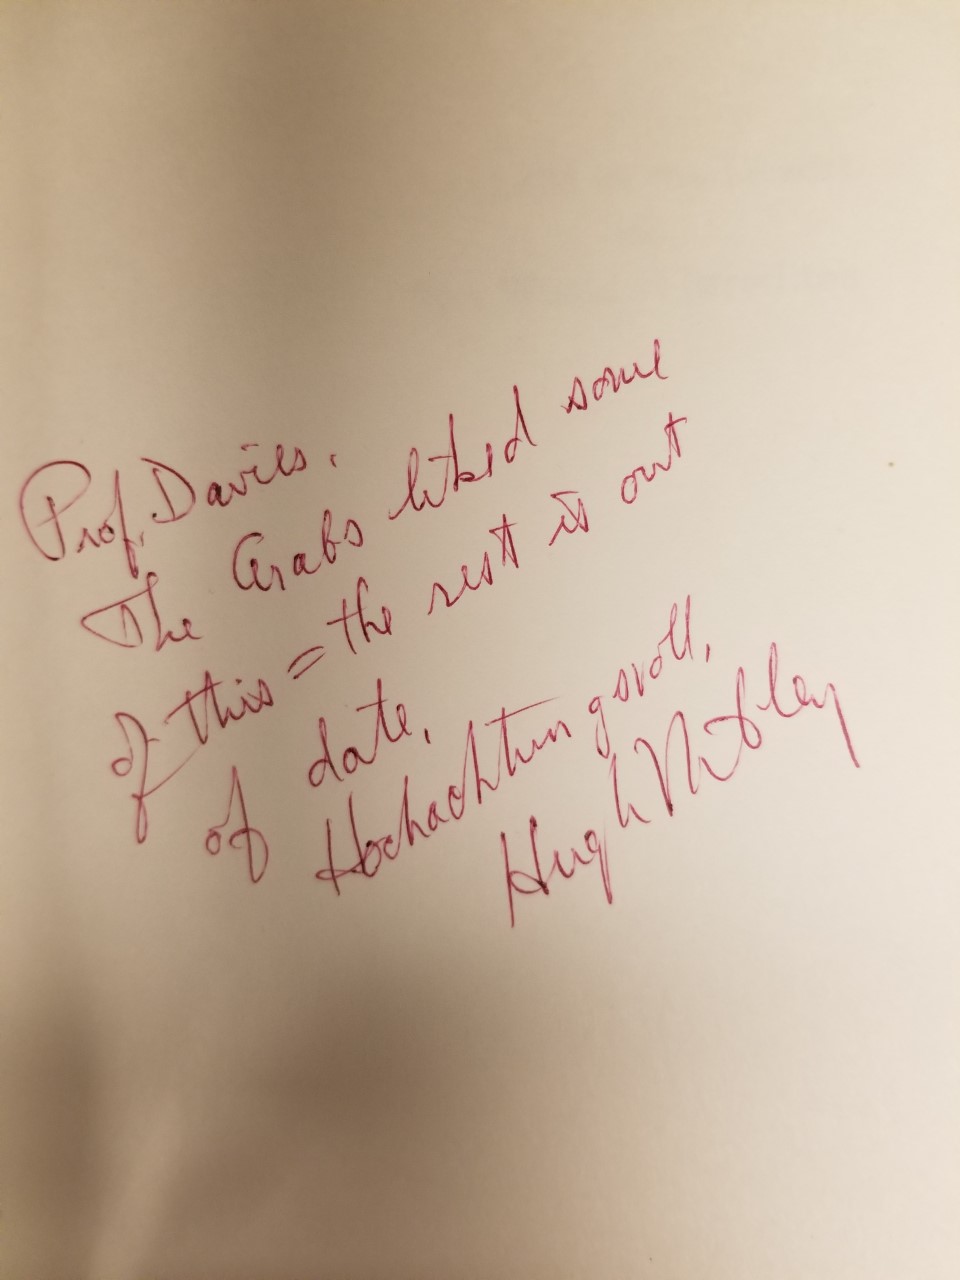 Prof. Davies.
The Arabs liked some
of this = the rest is out
of date,
Hochachtungsvoll,
Hugh Nibley